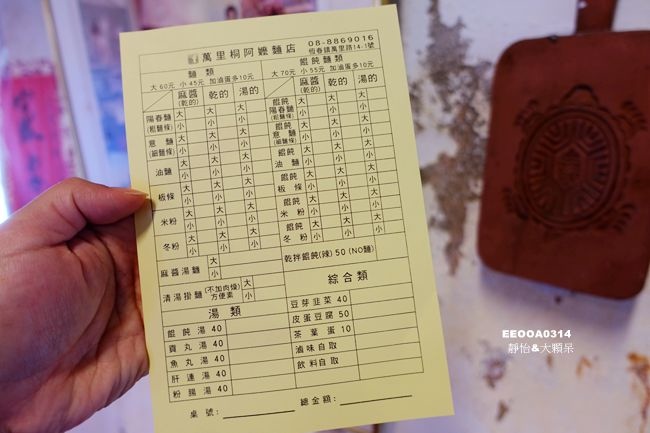 萬里桐阿嬤麵店
08-8869016
恆春鎮萬里路14-1號
麵類
大60元 小45元 加滷蛋多10元
麻醬(乾的) 乾的 湯的
陽春麵(粗麵條) 大 小 大 小 大 小
意麵(細麵條) 大 小 大 小 大 小
油麵 大 小 大 小 大 小
板條 大 小 大 小 大 小
米粉 大 小 大 小 大 小
冬粉 大 小 大 小 大 小
麻醬湯麵 大 小
清湯掛麵(不加肉燥)方便素 大 小
湯類
餛飩湯40
貢丸湯40
魚丸湯40
肝連湯40
粉腸湯40
餛飩麵類
大70元 小55元 加滷蛋多10元
麻醬(乾的) 乾的 湯的
餛飩陽春麵(粗麵條) 大 小 大 小 大 小
餛飩意麵(細麵條) 大 小 大 小 大 小
餛飩油麵 大 小 大 小 大 小
餛飩板條 大 小 大 小 大 小
餛飩米粉 大 小 大 小 大 小
餛飩冬粉 大 小 大 小 大 小
乾拌餛飩(辣)50(NO麵)
綜合類
豆芽韭菜40
皮蛋豆腐50
茶葉蛋10
滷味自取
飲料自取
桌號:
總金額:
EEOOA0314
靜怡&大顆呆